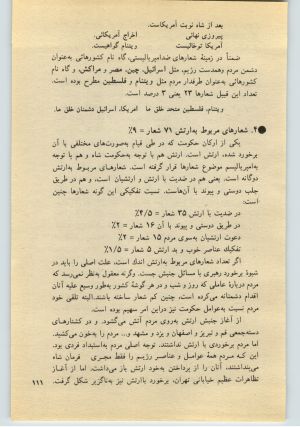 بعد از شاه نوبت آمریکاست.
پیروزی نهائی اخراج آمریکائی.
آمریکا توخالیست ویتنام گواهیست.
ضمناً در زمینهٔ شعارهای ضدامپریالیستی، گاه نام کشورهائی به‌عنوان
دشمن مردم وهمدست رژیم، مثل اسرائیل، چین، مصر و مراکش، و گاه نام
کشورهائی به‌عنوان طرفدار مردم مثل ویتنام و فلسطین مطرح بوده است.
تعداد این قبیل شعارها ۲۳ یعنی ۳ درصد است.
ویتنام، فلسطین متحد خلق ما امریکا، اسرائیل دشمنان خلق ما.
۴. شعارهای مربوط به‌ارتش ۷۱ شعار = ۹٪
یکی از ارکان حکومت که در طی قیام به‌صورت‌های مختلفی با آن
برخورد شده، ارتش است. ارتش هم با توجه به‌حکومت شاه و هم با توجه
به‌امپریالیسم موضوع شعارها قرار گرفته است. شعارهای مربوط به‌ارتش
دوگانه است، یعنی هم در ضدیت با ارتش و ارتشیان است، و هم در طریق
جلب دوستی و پیوند با آن‌هاست. نسبت تفکیکی این گونه شعارها چنین
است:
در ضدیت با ارتش ۳۵ شعار = ۴/۵٪
در طریق دوستی و پیوند با آن ۱۶ شعار = ۲٪
دعوت ارتشیان به‌سوی مردم ۱۵ شعار = ۲٪
تفکیک عناصر خوب و بد ارتش ۵ شعار = ۱/۵٪
اگر تعداد شعارهای مربوط به‌ارتش اندك است، علت اصلی را باید در
شیوهٔ برخورد رهبری با مسائل جنبش جست. وگرنه معقول به‌نظر نمی‌رسد که
مردم دربارهٔ عاملی که روز و شب و در هر گوشهٔ کشور به‌طور وسیع علیه آنان
اقدام دشمنانه می‌کرده است، چنین کم شعار ساخته باشند.البته تلقی خود
مردم نسبت به‌عوامل حکومت نیز دراین امر سهیم بوده است.
از آغاز جنبش ارتش به‌روی مردم آتش می‌گشود. و در کشتارهای
دسته‌جمعی قم و تبریز و اصفهان و یزد و مشهد و... مردم را به‌خون می‌کشید.
اما مردم برخوردی با ارتش نداشتند. توجه اصلی مردم به‌استبداد فردی بود.
این که مردم همهٔ عوامل و عناصر رژیم را فقط مجری فرمان شاه
می‌دانستند، آنان را از پرداختن به‌خود ارتش باز می‌داشت. اما از آغاز
تظاهرات عظیم خیابانی تهران، برخورد باارتش نیز به‌ناگزیر شکل گرفت.
۱۱۱